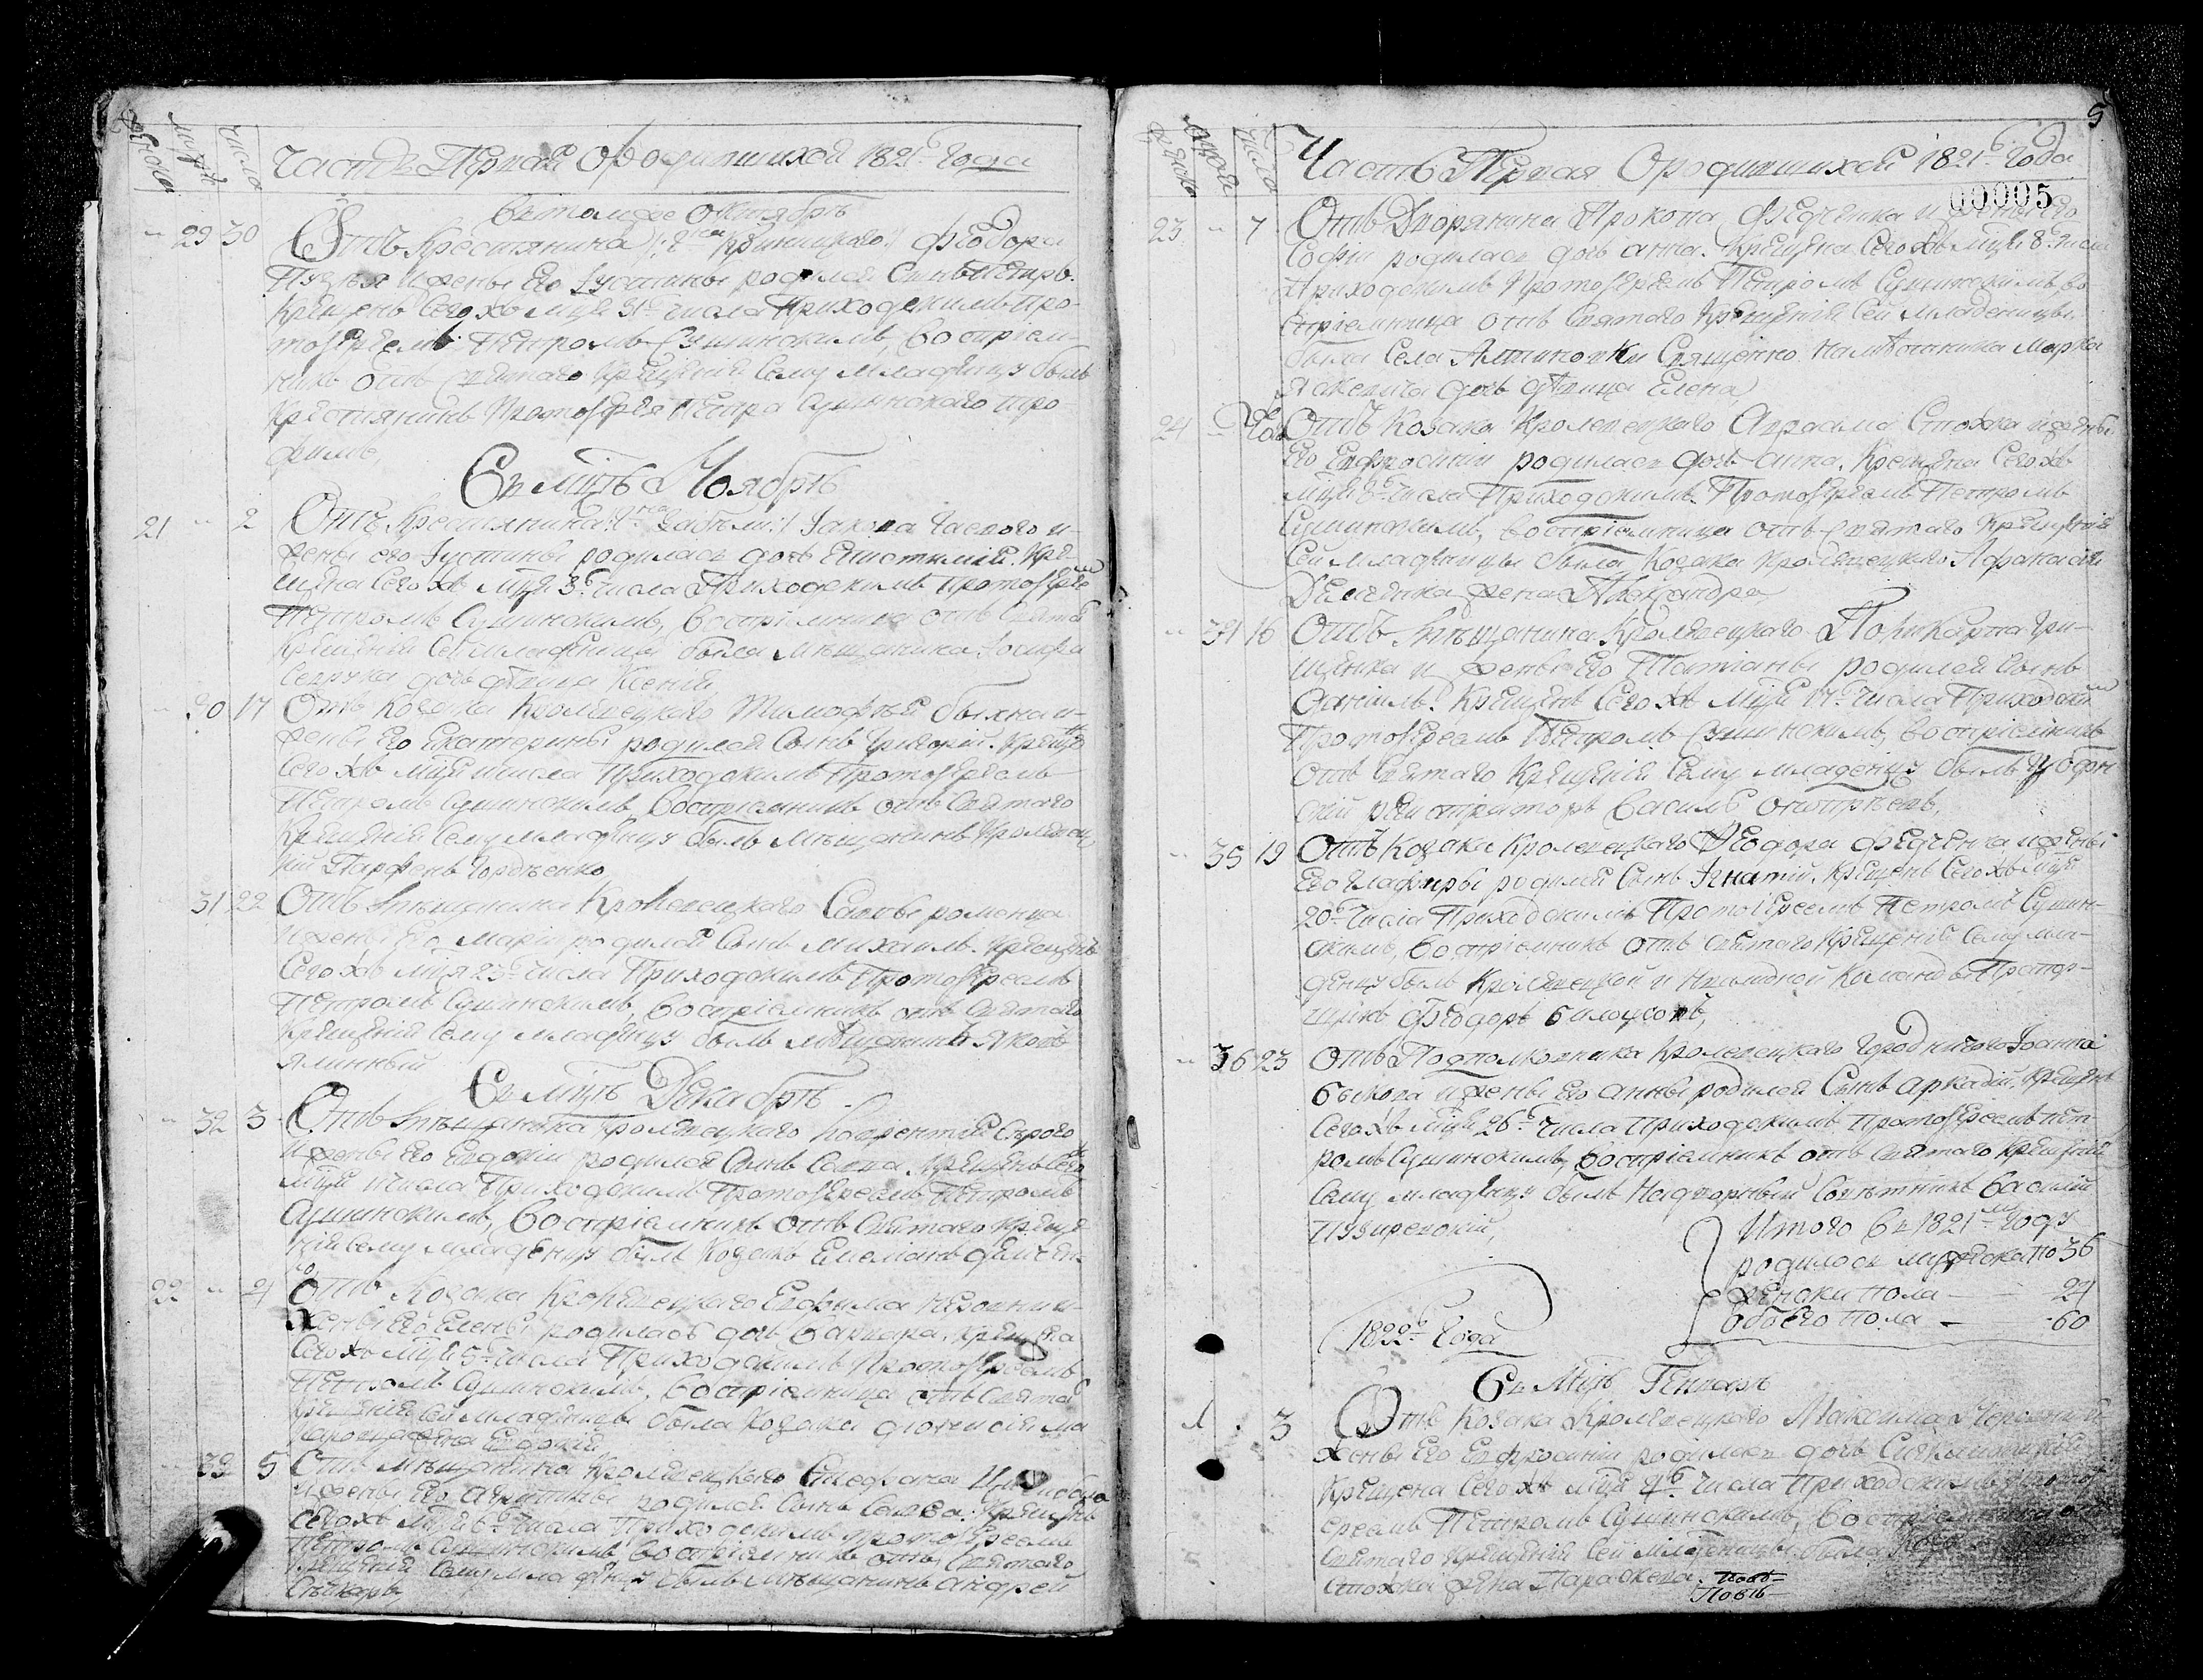 женска
мужеск
число
Часть Первая О родившихся 1821го Года
Втомже октябрѣ
29 30 Отъ Крестянина Феодора
и жены Его Іустины родился Сынъ Петръ.
Крещенъ сегожъ мця 31го числа Приходскимъ про-
тоіереемъ Петромъ Сушинскимъ, Воспріем-
никъ отъ Святаго Крещенія Сему младенцу былъ
Крестянинъ Протоіерея Петра Сушинского Тро-
фимъ,
Въ мцѣ Ноябрѣ
21 2 Отъ Крестянина Іакова Часного и
жены его Іустины родилась дочь Епистимія. Кре-
щена Сегожъ мця 3го числа Приходскимъ протоіерее
Петромъ Сушинскимъ, Воспріемница отъ Святаго
Крещенія Сей младеницы была мѣщанина Іосифа
дочь дѣвица Ксенія,
30 17 Отъ Козака Кролевецкого Тимофѣя Быхна и
жены Его Екатерины родился Сынъ Григорій. Креще
Сегожъ мця числа Приходскимъ Протоіереемъ
Петромъ Сушинскимъ Воспріемникъ отъ Святаго
Крещенія Сему младенцу былъ мѣщанинъ Кролевец
кій Парфенъ Гордѣенко,
31 22 Отъ мѣщанина Кролевецкого Саввы роменца
и жены Его маріи родился Сынъ Михаилъ. Крещенъ
Сегожъ мця 23го числа Приходскимъ Протоіереемъ
Петромъ Сушинскимъ, Воспріемникъ отъ Святаго
Крещенія Сему младенцу былъ мѣщанинъ Яковъ
ялинный
Въ мцѣ Декабрѣ
32 3 Отъ мѣщанина Кролевецкого Лаврентія Сѣрого
и жены Его Евдокіи родился Сынъ Савва. Крещенъ Сего
мця числа Приходскимъ Протоіереемъ Петромъ
Сушинскимъ, Воспріемникъ отъ Святаго Креще
нія Сему младенцу былъ Козакъ Емельянъ
22 4 Отъ Козака Кролевецкого Евфима и
жены Его Елены родилась дочь Варвара. Крещена
Сегожъ мця 5го числа Приходскимъ Протоіереемъ
Петромъ Сушинскимъ, Воспріемница отъ Святаго
Крещенія Сей младеницы была Козака діонисія
жена Евдокія
33 5 Отъ мѣщанина Кролевецкого Стефана
и жены Его Агрипины родился Сынъ Савва. Крещенъ
Сегожъ мця 6го числа Приходскимъ протоіереемъ
Петромъ Сушинскимъ Воспріемникъ отъ Святаго
Крещенія Сему младенцу былъ мѣщанинъ Андрей
5
женска
мужеска
число
Часть Первая О родившихся 1821го Года
00005
23 7 Отъ Дворянина Прокопа Федченка и жены Его
Софіи родилась дочь анна. Крещена Сегожъ мця 8го числа
Приходскимъ Протоіереемъ Петромъ Сушинскимъ, во
спріемница отъ Святаго Крещенія Сей младеницы
была Села Алтиновки Священно намѣстника Марка
дочь дѣвица Елена,
24 Отъ Козака Кролевецкого Авраама Стожка и жены
Его Евфросиніи родилась дочь анна. Крещена Сегожъ
мця числа Приходскимъ Протоіереемъ Петромъ
Сушинскимъ, Воспріемница отъ Святаго Крещенія
Сей младеницы была Козака Кролевецкого Афанасія
жена Александра,
34 16 Отъ мѣщанина Кролевецкого Поликарпа Гри-
щенка и жены Его Татіаны родился Сынъ
Даніилъ. Крещенъ Сегожъ мця 17го числа Приходским
Протоіереемъ Петромъ Сушинскимъ, Воспріемникъ
отъ Святаго Крещенія Сему младенцу былъ Губерн
скій регистраторъ Василь
35 19 Отъ Козака Кролевецкого Феодора Федченка и жены
Его Глафиры родился Сынъ Игнатій. Крещенъ Сегожъ мця
20го числа Приходскимъ Протоіереемъ Петромъ Сушин-
скимъ, Воспріемникъ отъ Святаго Крещенія Сему мла-
денцу былъ Кролевецкой инвалидной Команды Прапор-
щикъ Феодоръ Билоусовъ,
36 23 Отъ Подполковника Кролевецкого Городничого Іоанна
Быкова и жены Его анны родился Сынъ Аркадій. Крещенъ
Сегожъ мця 26го числа Приходскимъ Протоіереемъ Пет-
ромъ Сушинскимъ, Воспріемникъ отъ Святаго Крещенія
Сему младенцу былъ Надворный Совѣтникъ Василій
Пузыревскій,
Итого Въ 1821мъ году
родилось мужеска по 36
женски пола — 24
обоего пола — 60
1822го Года
Въ Мцѣ Генварѣ
1 3 Отъ Козака Кролевецкого Максима и
жены Его Евфросиніи родилась дочь
Крещена Сегожъ мця 4го числа Приходскимъ Протоі
ереемъ Петромъ Сушинскимъ, Воспріемница отъ
Святаго Крещенія Сей младеницы была
Стожка жена Параскева.